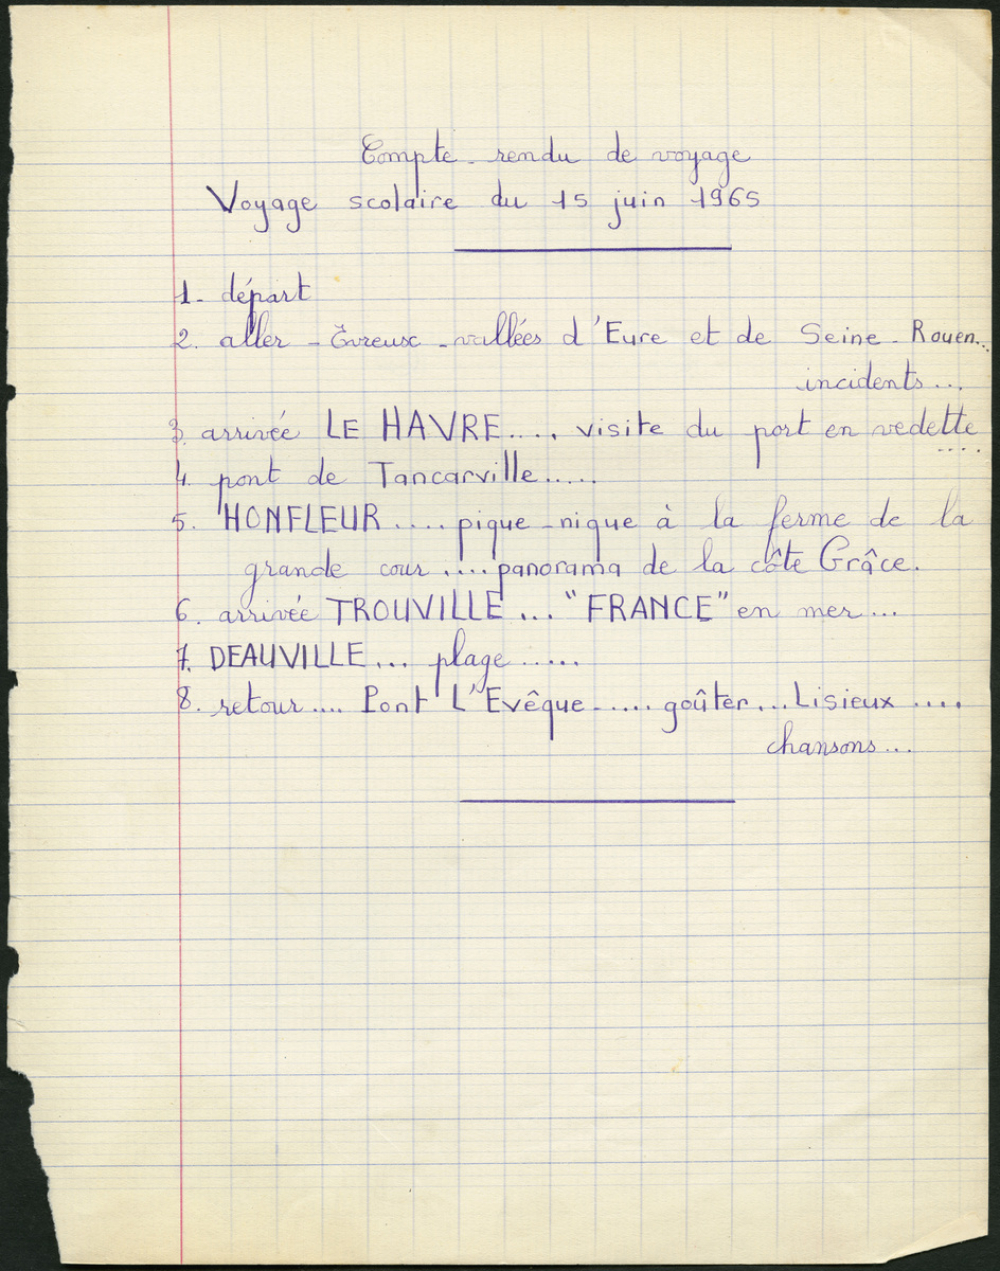 Compte-rendu de voyage
Voyage scolaire du 15 juin 1965
1- départ
2. aller - Évreux - vallées d'Eure et de Seine - Rouen...
incidents...
3. arrivée LE HAVRE.... visite du port en vedette
....
4. pont de Tancarville.....
5. HONFLEUR.....pique-nique à la ferme de la
grande cour .... panorama de la côte Grâce.
6. arrivée TROUVILLE ... "FRANCE" en mer...
7. DEAUVILLE... plage .....
8. retour .... Pont L'Evêque ..... goûter...Lisieux ....
chansons...